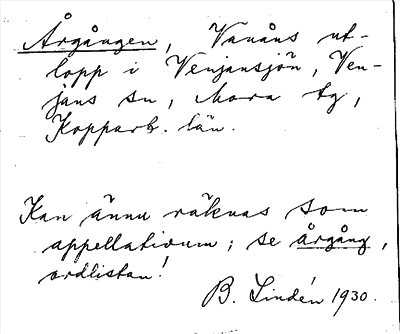 Årgången, Vanåns ut-
lopp i Venjansjön, Ven-
jans sn, Mora tg,
Kopparb. län.
Kan ännu räknas som
appellativum; se årgång,
ordlistan!
B. Lindén 1930.